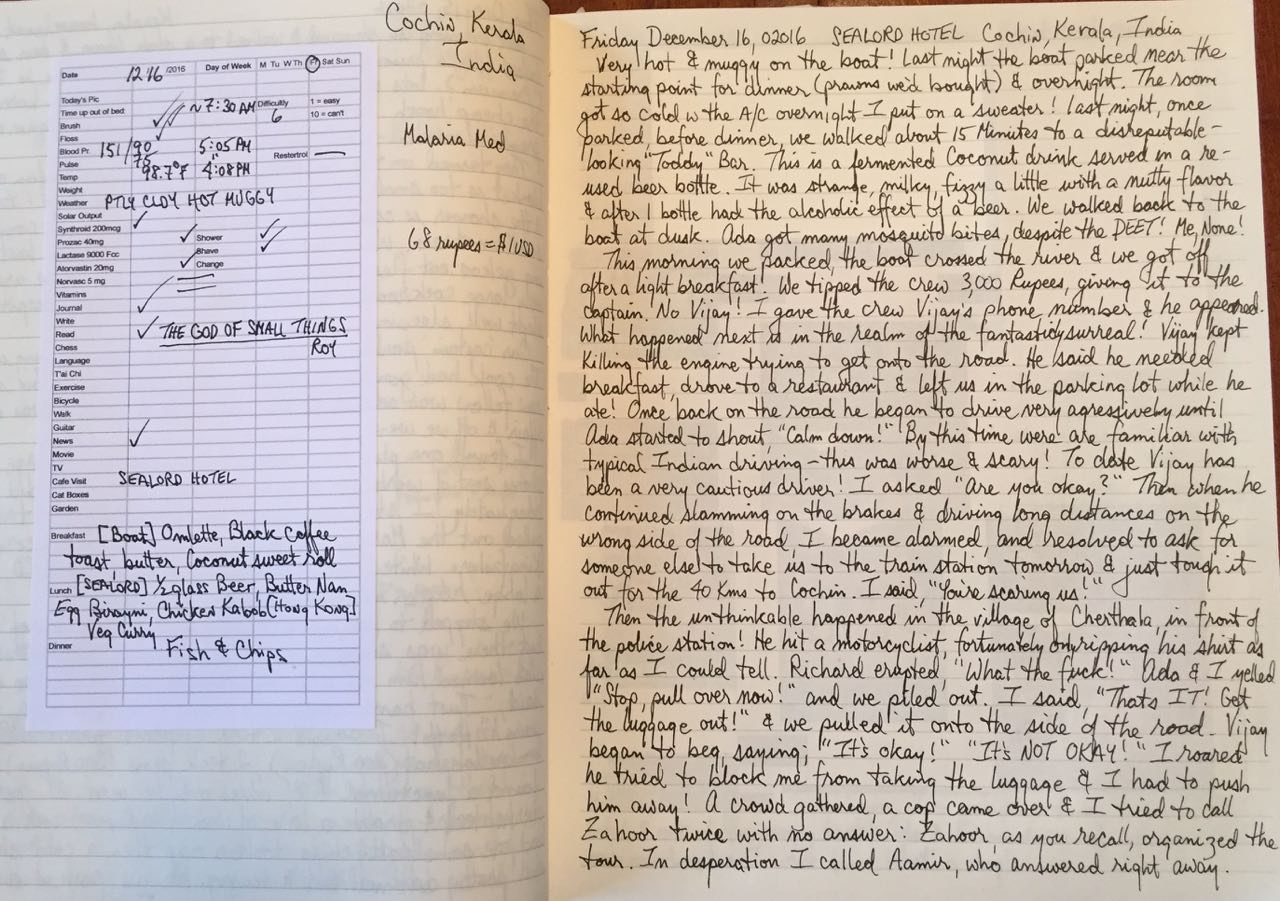 Cochin, Kerala
India
Malaria Med
68 rupees = $1 USD
Date 12 16 /2016 Day of Week M Tu W Th Fr Sat Sun
Today's Pic
Time up out of bed: ~7:30 AM Difficulty 6 1 = easy
Brush 10 = can't
Floss
Blood Pr. 151/90 5:05 AM
Pulse 75 " Restertrol —
Temp 98.7°F 4:08PM
Weight
Weather PTLY CLDY HOT MUGGY
Solar Output
Synthroid 200mcg ✓
Prozac 40mg ✓ Shower ✓
Lactase 9000 Fcc Shave ✓
Atorvastin 20mg ✓ Change
Norvasc 5 mg
Vitamins
Journal ✓
Write
Read ✓ THE GOD OF SMALL THINGS
Chess ROY
Language
T'ai Chi
Exercise
Bicycle
Walk
Guitar
News ✓
Movie
TV
Cafe Visit SEALORD HOTEL
Cat Boxes
Garden
Breakfast [Boat] Omlette, Black Coffee
toast butter, Coconut sweet roll
Lunch [SEALORD] ½ glass Beer, Butter Nan
Egg Birayni, Chicken Kabob [Hong Kong]
Veg Curry
Dinner Fish & Chips
Friday December 16, 02016 SEALORD HOTEL Cochin, Kerala, India
Very hot & muggy on the boat! Last night the boat parked near the
starting point for dinner (prawns we'd bought) & overnight. The room
got so cold w the A/C overnight I put on a sweater! Last night, once
parked, before dinner, we walked about 15 Minutes to a disreputable-
looking "Toddy" Bar. This is a fermented Coconut drink served in a re-
used beer bottle. It was strange, milky, fizzy a little with a nutty flavor
& after 1 bottle had the alcoholic effect of a beer. We walked back to the
boat at dusk. Ada got many mosquito bites, despite the DEET! Me, None!
This morning we packed, the boat crossed the river & we got off
after a light breakfast. We tipped the crew 3,000 Rupees, giving it to the
captain. No Vijay! I gave the crew Vijay's phone number & he appeared.
What happened next is in the realm of the fantasticly surreal! Vijay kept
Killing the engine trying to get onto the road. He said he needed
breakfast, drove to a restaurant & left us in the parking lot while he
ate! Once back on the road he began to drive very agressively until
Ada started to shout, "Calm down!" By this time were are familiar with
typical Indian driving — this was worse & scary! To date Vijay has
been a very cautious driver! I asked "Are you okay?" Then when he
continued slamming on the brakes & driving long distances on the
wrong side of the road, I became alarmed, and resolved to ask for
someone else to take us to the train station tomorrow & just tough it
out for the 40 Kms to Cochin. I said, "You're scaring us!"
Then the unthinkable happened in the village of Cherthala, in front of
the police station! He hit a motorcyclist, fortunately only ripping his shirt as
far as I could tell. Richard erupted, "What the fuck!" Ada & I yelled
"Stop, pull over now!" and we piled out. I said, "Thats IT! Get
the luggage out!" & we pulled it onto the side of the road. Vijay
began to beg, saying; "It's okay!" "It's NOT OKAY!" I roared
he tried to block me from taking the luggage & I had to push
him away! A crowd gathered, a cop came over & I tried to call
Zahoor twice with no answer: Zahoor, as you recall, organized the
tour. In desperation I called Aamir, who answered right away.